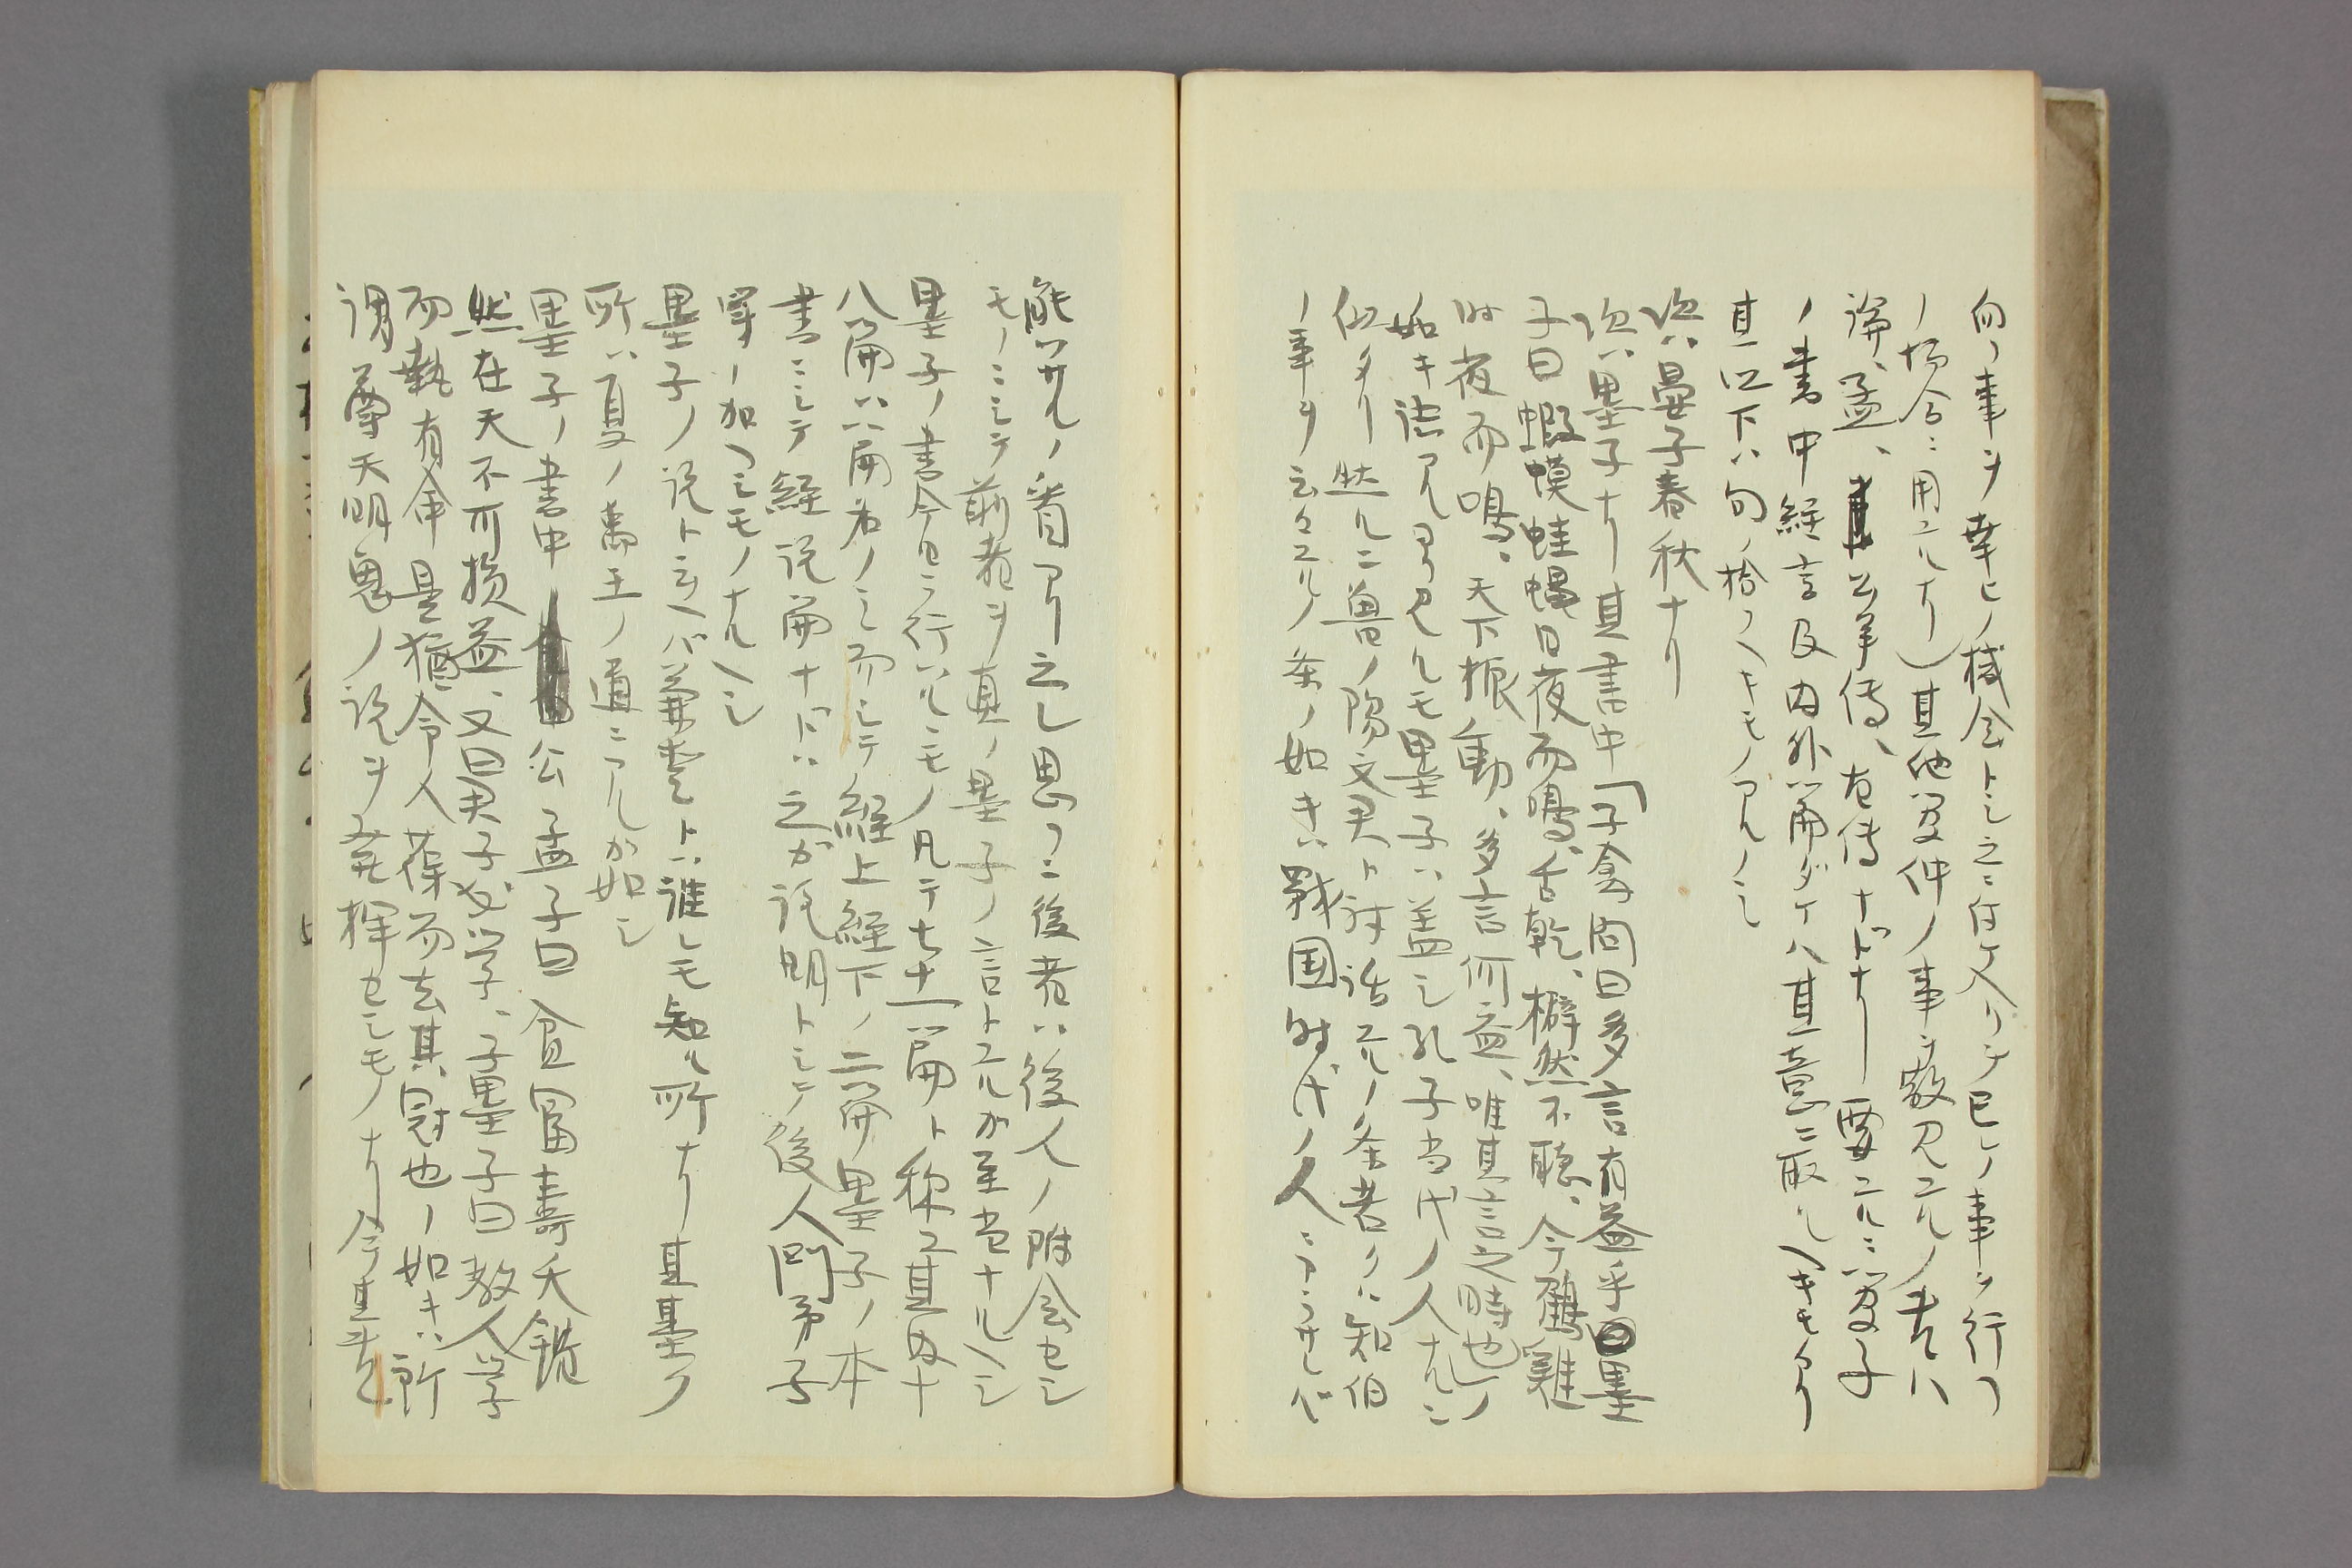 向フ事ヲ幸ヒノ機会トシ之ニ付ケ入リテ已レノ事ヲ行フ
ノ場合ニ用ユルナリ)其他管仲ノ事ヲ散見スルノ書ハ
論、孟、公羊伝、左伝ナドナリ要スルニ管子
ノ書中経言及内外篇ダケハ其意ニ取ルヘキモアリ
其以下ハ句ノ拾フヘキモノアルノミ
次ハ晏子春秋ナリ
次ハ墨子ナリ其書中「子禽問曰多言有益乎曰墨
子曰蝦蟆蛙蠅日夜而鳴、舌乾、檘然不聴、今鶴雞
時夜而鳴、天下振動、多言何益、唯其言之時也」ノ
如キ語アルヲ見ルモ墨子ハ蓋シ孔子当代ノ人ナルニ
似タリ然ルニ魯ノ陽文君ト対話スルノ条若クハ知伯
ノ事ヲ云々スルノ条ノ如キハ戦国時代ノ人ニアラザレバ
能ハザルノ看アリ之レ思フニ後者ハ後人ノ附会セシ
モノニシテ前者ヲ真ノ墨子ノ言トスルガ至当ナルヘシ
墨子ノ書今日ニ行ハルヽモノ凡テ七十一篇ト称ス其内十
八篇ハ篇名ノミ而シテ経上経下ノ二篇墨子ノ本
書ニシテ経説篇ナドハ之ガ説明トシテ後人門弟子
等ノ加ヘシモノナルヘシ
墨子ノ説ト云ヘバ兼愛トハ誰レモ知ル所ナリ其基ク
所ハ夏ノ禹王ノ道ニアルガ如シ
墨子ノ書中公孟子曰貧富寿夭錯
然在天不可損益、又曰君子必学、子墨子曰教人学
而執有命是猶令人葆而去其冠也ノ如キハ所
謂尊天明鬼ノ説ヲ発揮セシモノナリ今其書